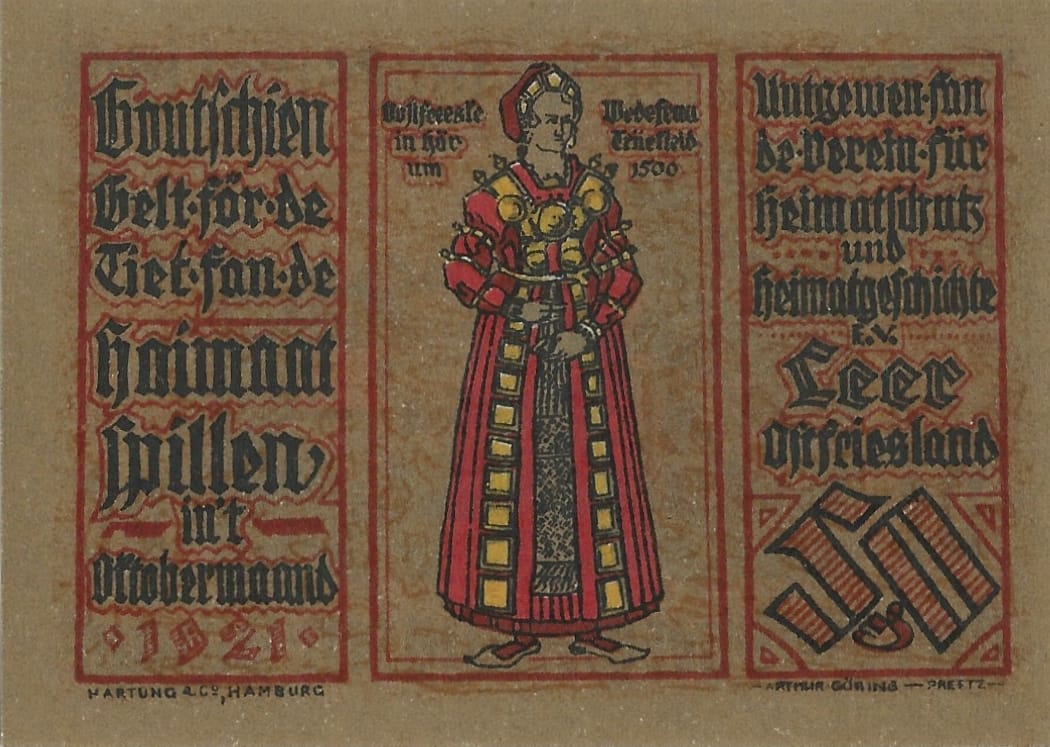 Goutschien
Gelt·för·de
Tiet·fan·de
Haimaat
spillen,
in't
Oktobermaand
·1921·
Oostfreeske
in hör
um
1500
Uutgewen·fan
de·Verein·für
Heimatschutz
und
Heimatgeschichte
E.V.
Leer
Ostfriesland
50
HARTUNG & Cº, HAMBURG
ARTHUR GÜRING — PREETZ